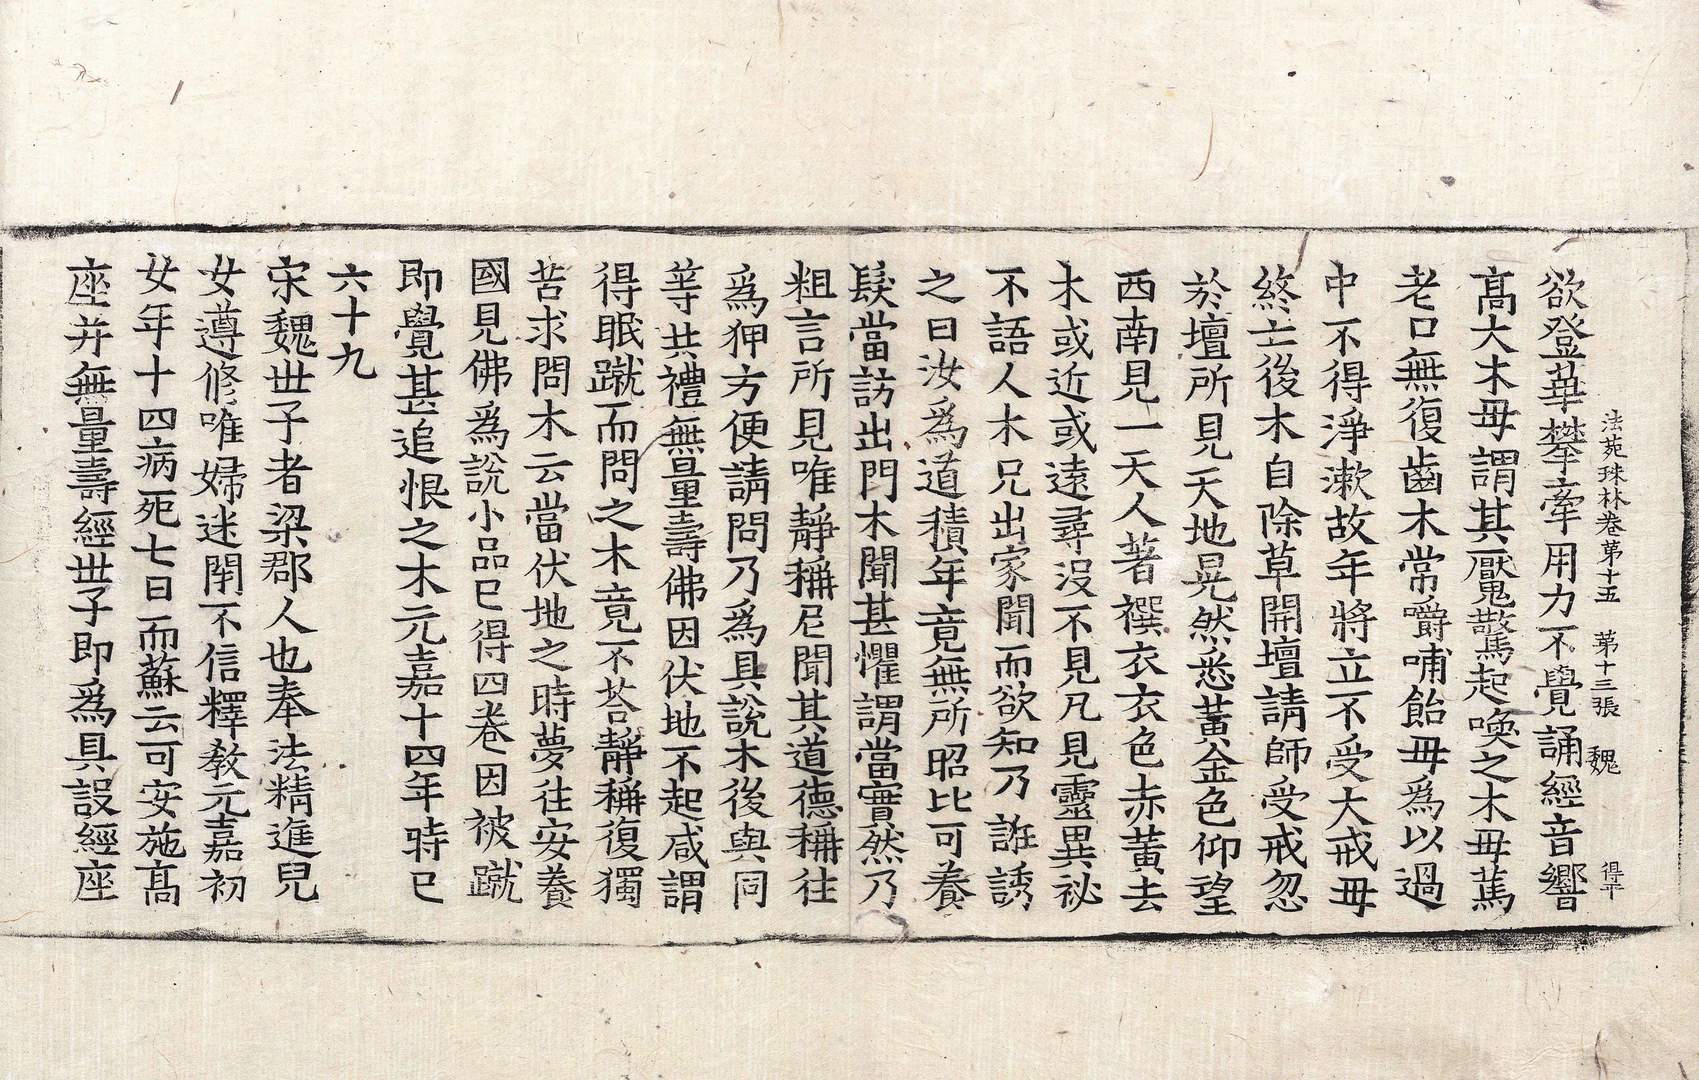 法苑珠林卷第十五　第十三張　魏　得平
欲登華攀牽用力不覺誦經音響
髙大木毋謂其魘驚起喚之木毋萬
老口無復齒木常嚼哺飴毋爲以過
中不得淨漱故年將立不受大戒毋
終亡後木自除草開壇請師受戒忽
於壇所見天地晃然悉黃金色仰望
西南見一天人著襈衣衣色赤黃去
木或近或遠尋没不見凡見靈異祕
不語人木兄出家聞而欲知乃誑誘
之曰汝爲道積年竟無所昭比可養
髮當訪出門木聞甚懼謂當實然乃
粗言所見唯靜稱尼聞其道德稱往
爲狎方便請問乃爲具說木後與同
等共禮無量壽佛因伏地不起咸謂
得眠蹴而問之木竟不荅靜稱復獨
苦求問木云當伏地之時夢往安養
國見佛爲說小品已得四卷因被蹴
即覺甚追恨之木元嘉十四年時已
六十九
宋魏世子者梁郡人也奉法精進兒
女遵修唯婦迷閇不信釋教元嘉初
女年十四病死七日而蘇云可安施髙
座并無量壽經世子即爲具設經座